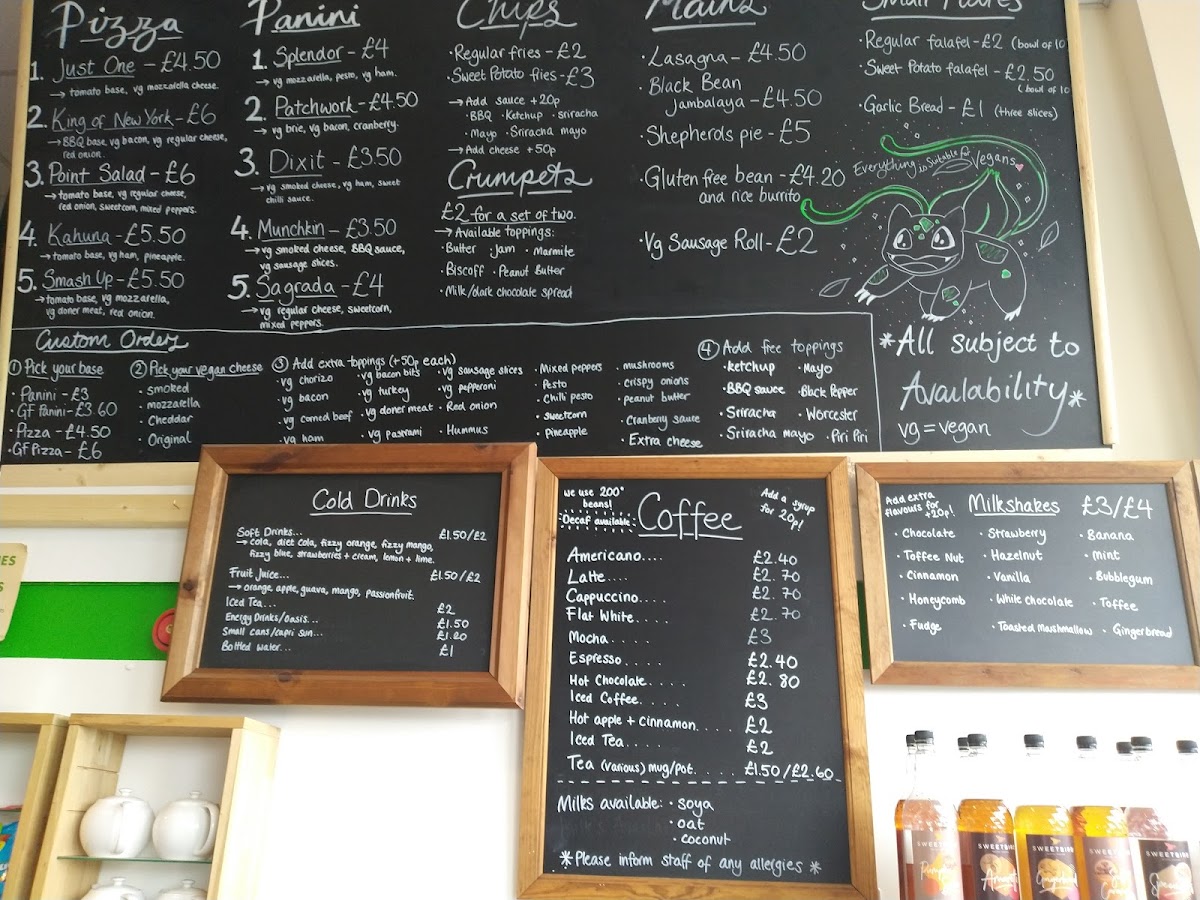 Pizza
1. Just One - £4.50
→ tomato base, vg mozzarella cheese.
2. King of New York - £6
→ BBQ base, vg bacon, vg regular cheese,
red onion.
3. Point Salad - £6
→ tomato base, vg regular cheese,
red onion, sweetcorn, mixed peppers.
4. Kahuna - £5.50
→ tomato base, vg ham, pineapple.
5. Smash Up - £5.50
→ tomato base, vg mozzarella,
vg doner meat, red onion.
Panini
1. Splendor - £4
→ vg mozzarella, pesto, vg ham.
2. Patchwork - £4.50
→ vg brie, vg bacon, cranberry.
3. Dixit - £3.50
→ vg smoked cheese, vg ham, sweet
chilli sauce.
4. Munchkin - £3.50
→ vg smoked cheese, BBQ sauce,
vg sausage slices.
5. Sagrada - £4
→ vg regular cheese, sweetcorn,
mixed peppers.
Chips
· Regular fries - £2
· Sweet Potato fries - £3
→ Add sauce +20p
· BBQ · Ketchup · Sriracha
· Mayo · Sriracha mayo
→ Add cheese +50p
Crumpets
£2 for a set of two.
→ Available toppings:
· Butter · Jam · Marmite
· Biscoff · Peanut Butter
· Milk/dark chocolate spread
Mains
· Lasagna - £4.50
· Black Bean
Jambalaya - £4.50
· Shepherds pie - £5
· Gluten free bean - £4.20
and rice burrito
· Vg Sausage Roll - £2
Small Plates
· Regular falafel - £2 (bowl of 10
· Sweet Potato falafel - £2.50
(bowl of 10
· Garlic Bread - £1 (three slices)
Everything is suitable for Vegans
*All subject to
Availability*
vg = vegan
Custom Orders
① Pick your base
· Panini - £3
· GF Panini - £3.60
· Pizza - £4.50
· GF Pizza - £6
② Pick your vegan cheese
· smoked
· mozzarella
· Cheddar
· Original
③ Add extra toppings (+50p each)
· vg chorizo
· vg bacon
· vg corned beef
· vg ham
· vg bacon bits
· vg turkey
· vg doner meat
· vg pastrami
· vg sausage slices
· vg pepperoni
· Red onion
· Hummus
· Mixed peppers
· Pesto
· Chilli pesto
· sweetcorn
· pineapple
· mushrooms
· crispy onions
· peanut butter
· Cranberry sauce
· Extra cheese
④ Add free toppings
· ketchup
· BBQ sauce
· Sriracha
· Sriracha mayo
· Mayo
· Black Pepper
· Worcester
· Piri Piri
Cold Drinks
Soft Drinks... £1.50/£2
→ cola, diet cola, fizzy orange, fizzy mango,
fizzy blue, strawberries + cream, lemon + lime.
Fruit Juice... £1.50/£2
→ orange, apple, guava, mango, passionfruit.
Iced Tea... £2
Energy Drinks/oasis... £1.50
Small cans/capri sun... £1.20
Bottled water... £1
we use 200°
beans!
Decaf available
Coffee
Add a syrup
for 20p!
Americano.... £2.40
Latte.... £2.70
Cappuccino.... £2.70
Flat White..... £2.70
Mocha..... £3
Espresso..... £2.40
Hot Chocolate..... £2.80
Iced Coffee..... £3
Hot apple + cinnamon..... £2
Iced Tea.... £2
Tea (various) mug/pot..... £1.50/£2.60
Milks available: · soya
· oat
· coconut
*Please inform staff of any allergies*
Add extra
flavours for
+20p!
Milkshakes £3/£4
· Chocolate
· Toffee Nut
· Cinnamon
· Honeycomb
· Fudge
· Strawberry
· Hazelnut
· Vanilla
· White chocolate
· Toasted Marshmallow
· Banana
· mint
· Bubblegum
· Toffee
· Gingerbread
SWEETBIRD
SWEETBIRD
SWEETBIRD
SWEETBIRD